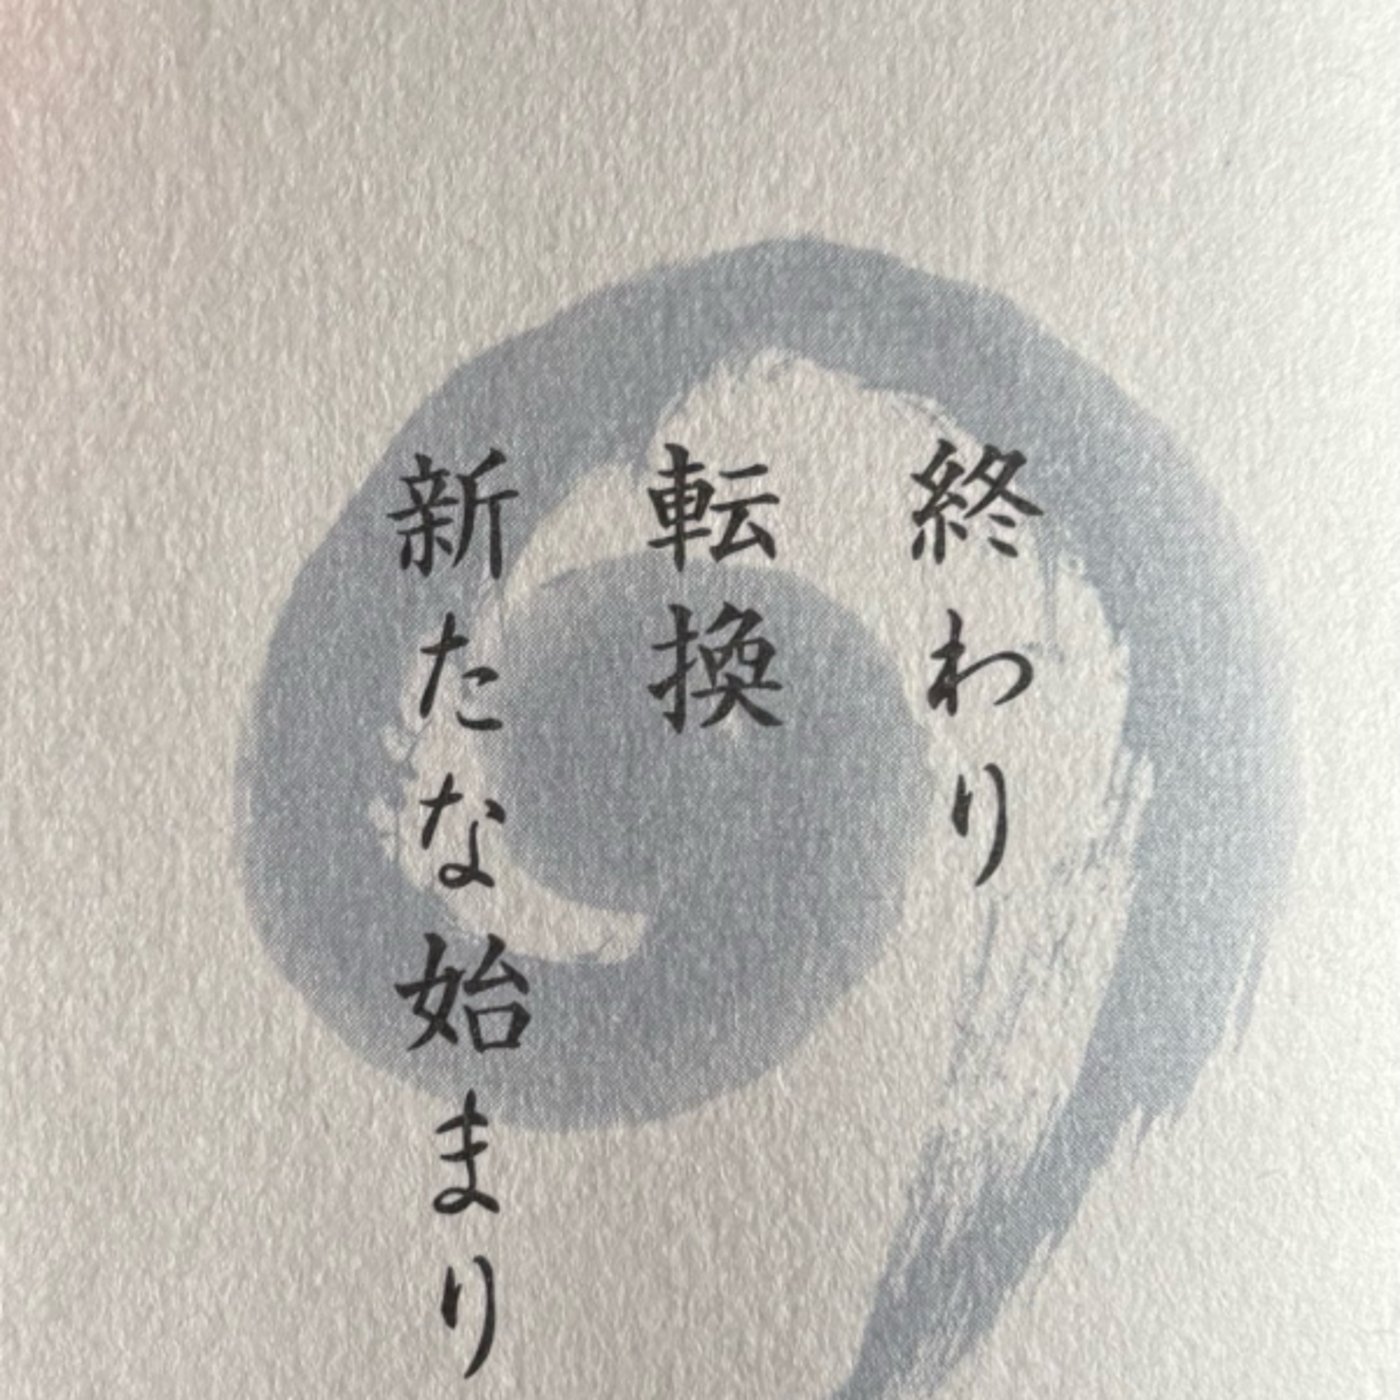 終わり
転換
新たな始まり